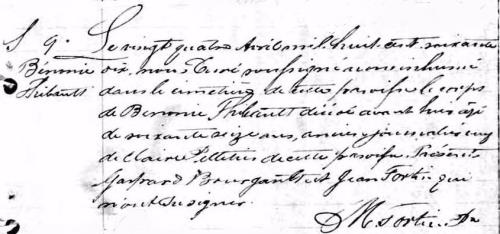 S 9. Le vingt quatre Avril mil huit cent soixante
Bénonie dix, nous Curé soussigné avons inhumé
Thibault dans le cimetière de cette paroisse le corps
de Benonie Thibault décédé avant hier âgé
de soixante seize ans, ancien journalier
de Claire Pelletier de cette paroisse. Présents
Gaspard Bourgault et Jean Fortin qui
n'ont su signer.
Ptre